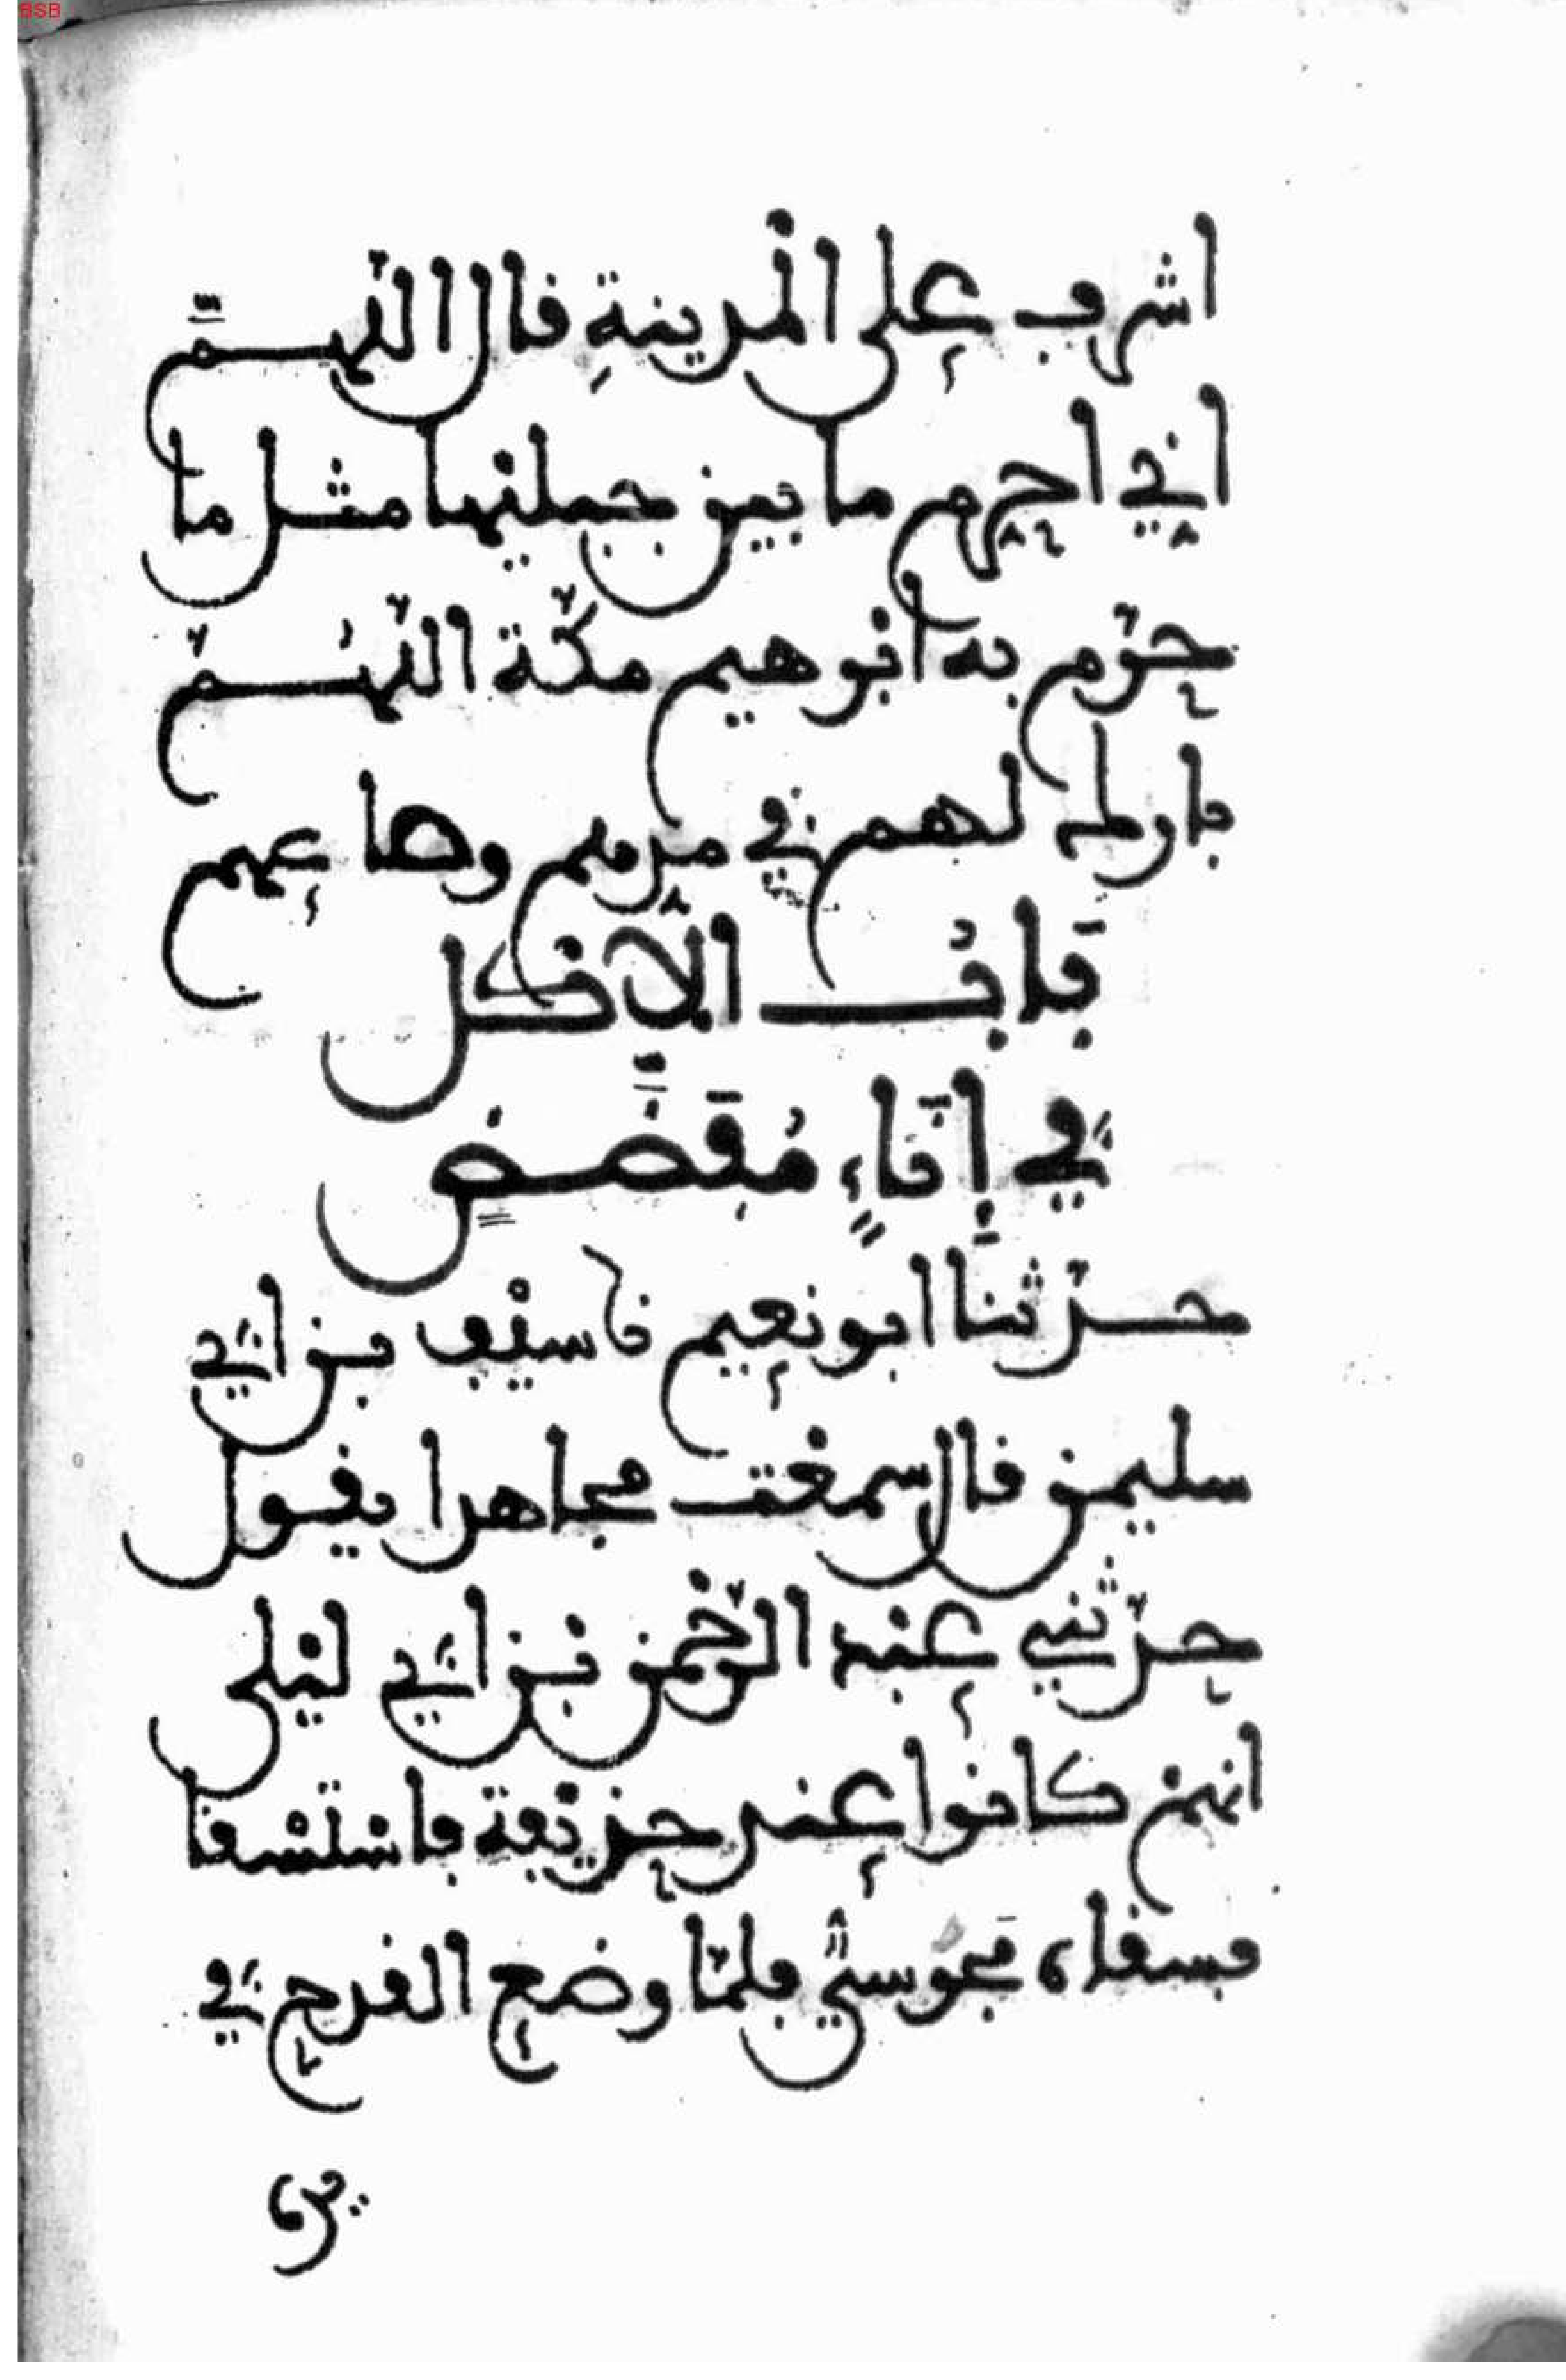 BSB
اشرف على المدينةِ قال اللهمَّ
اني احرم ما بين جبليها مثل ما
حرّم به ابرهيم مكّة اللهُمّ
بارك لهم في مدهم وصاعهم
بَابُ الاَكل
في إِنَاءٍ مُفَضَّضٍ
حدّثنا ابو نعيم نا سيْف بن ابي
سليمن قال سمعْت مجاهدا يقول
حدّثني عبْد الرّحْمن بْن ابي ليْلى
انهمْ كانوا عند حذيْفة فاسْتسْقا
فسقاه مَجوسيّ فلمّا وضع القدح في